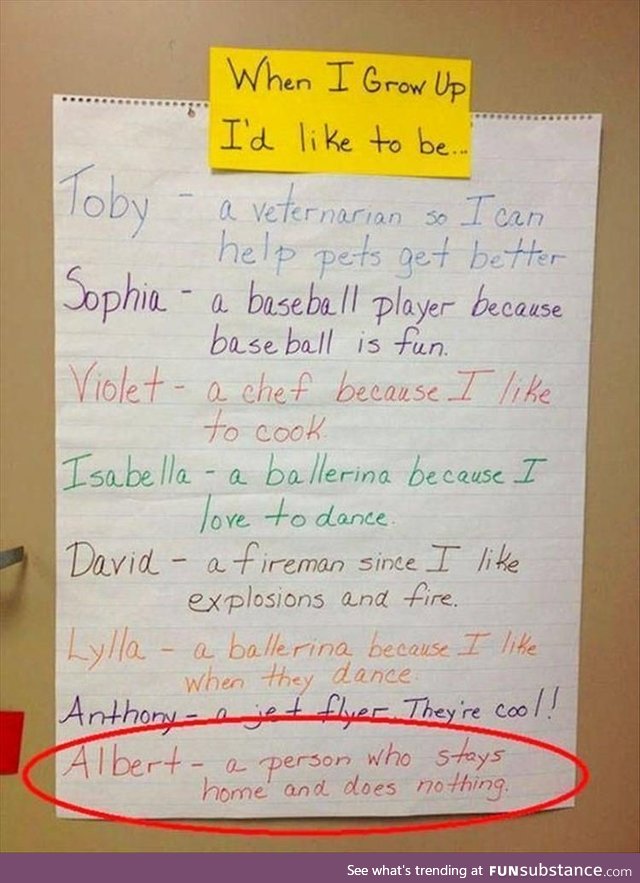 When I Grow Up
I'd like to be...
Toby - a veternarian so I can
help pets get better
Sophia - a baseball player because
baseball is fun.
Violet - a chef because I like
to cook.
Isabella - a ballerina because I
love to dance.
David - a fireman since I like
explosions and fire.
Lylla - a ballerina because I like
when they dance.
Anthony - a jet flyer. They're cool!
Albert - a person who stays
home and does nothing.
See what's trending at FUNsubstance.com